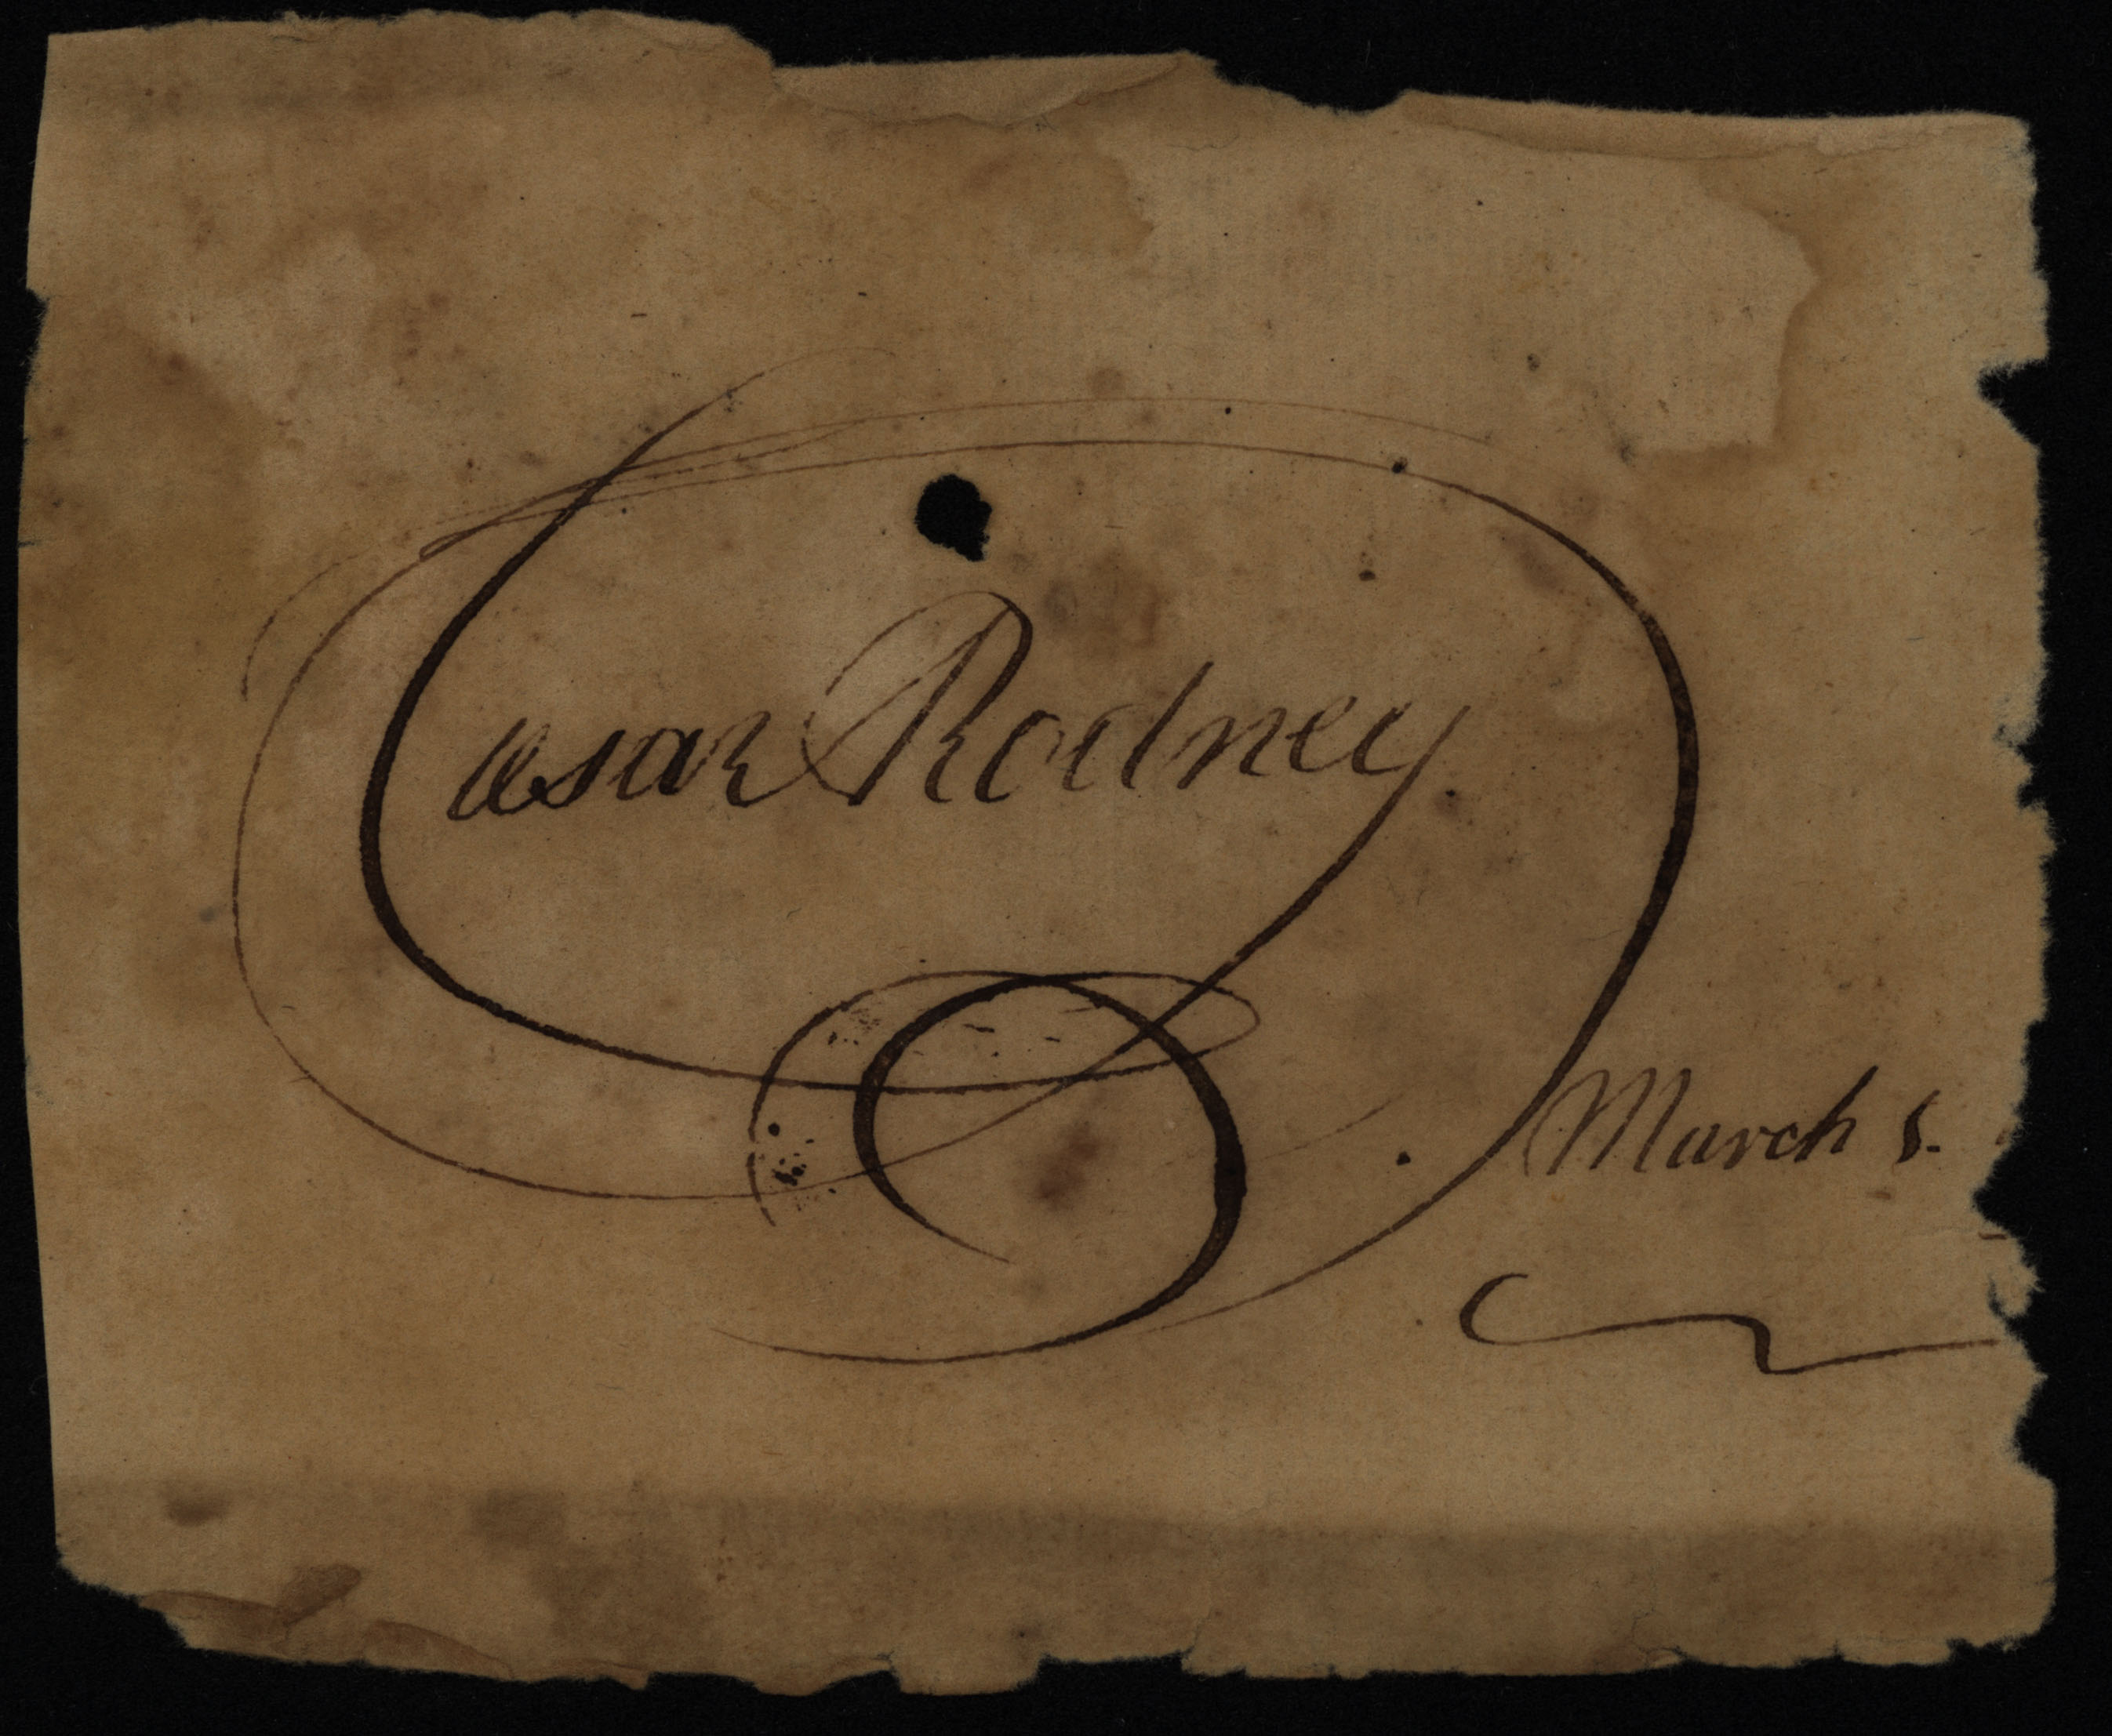 Cæsar Rodney
March